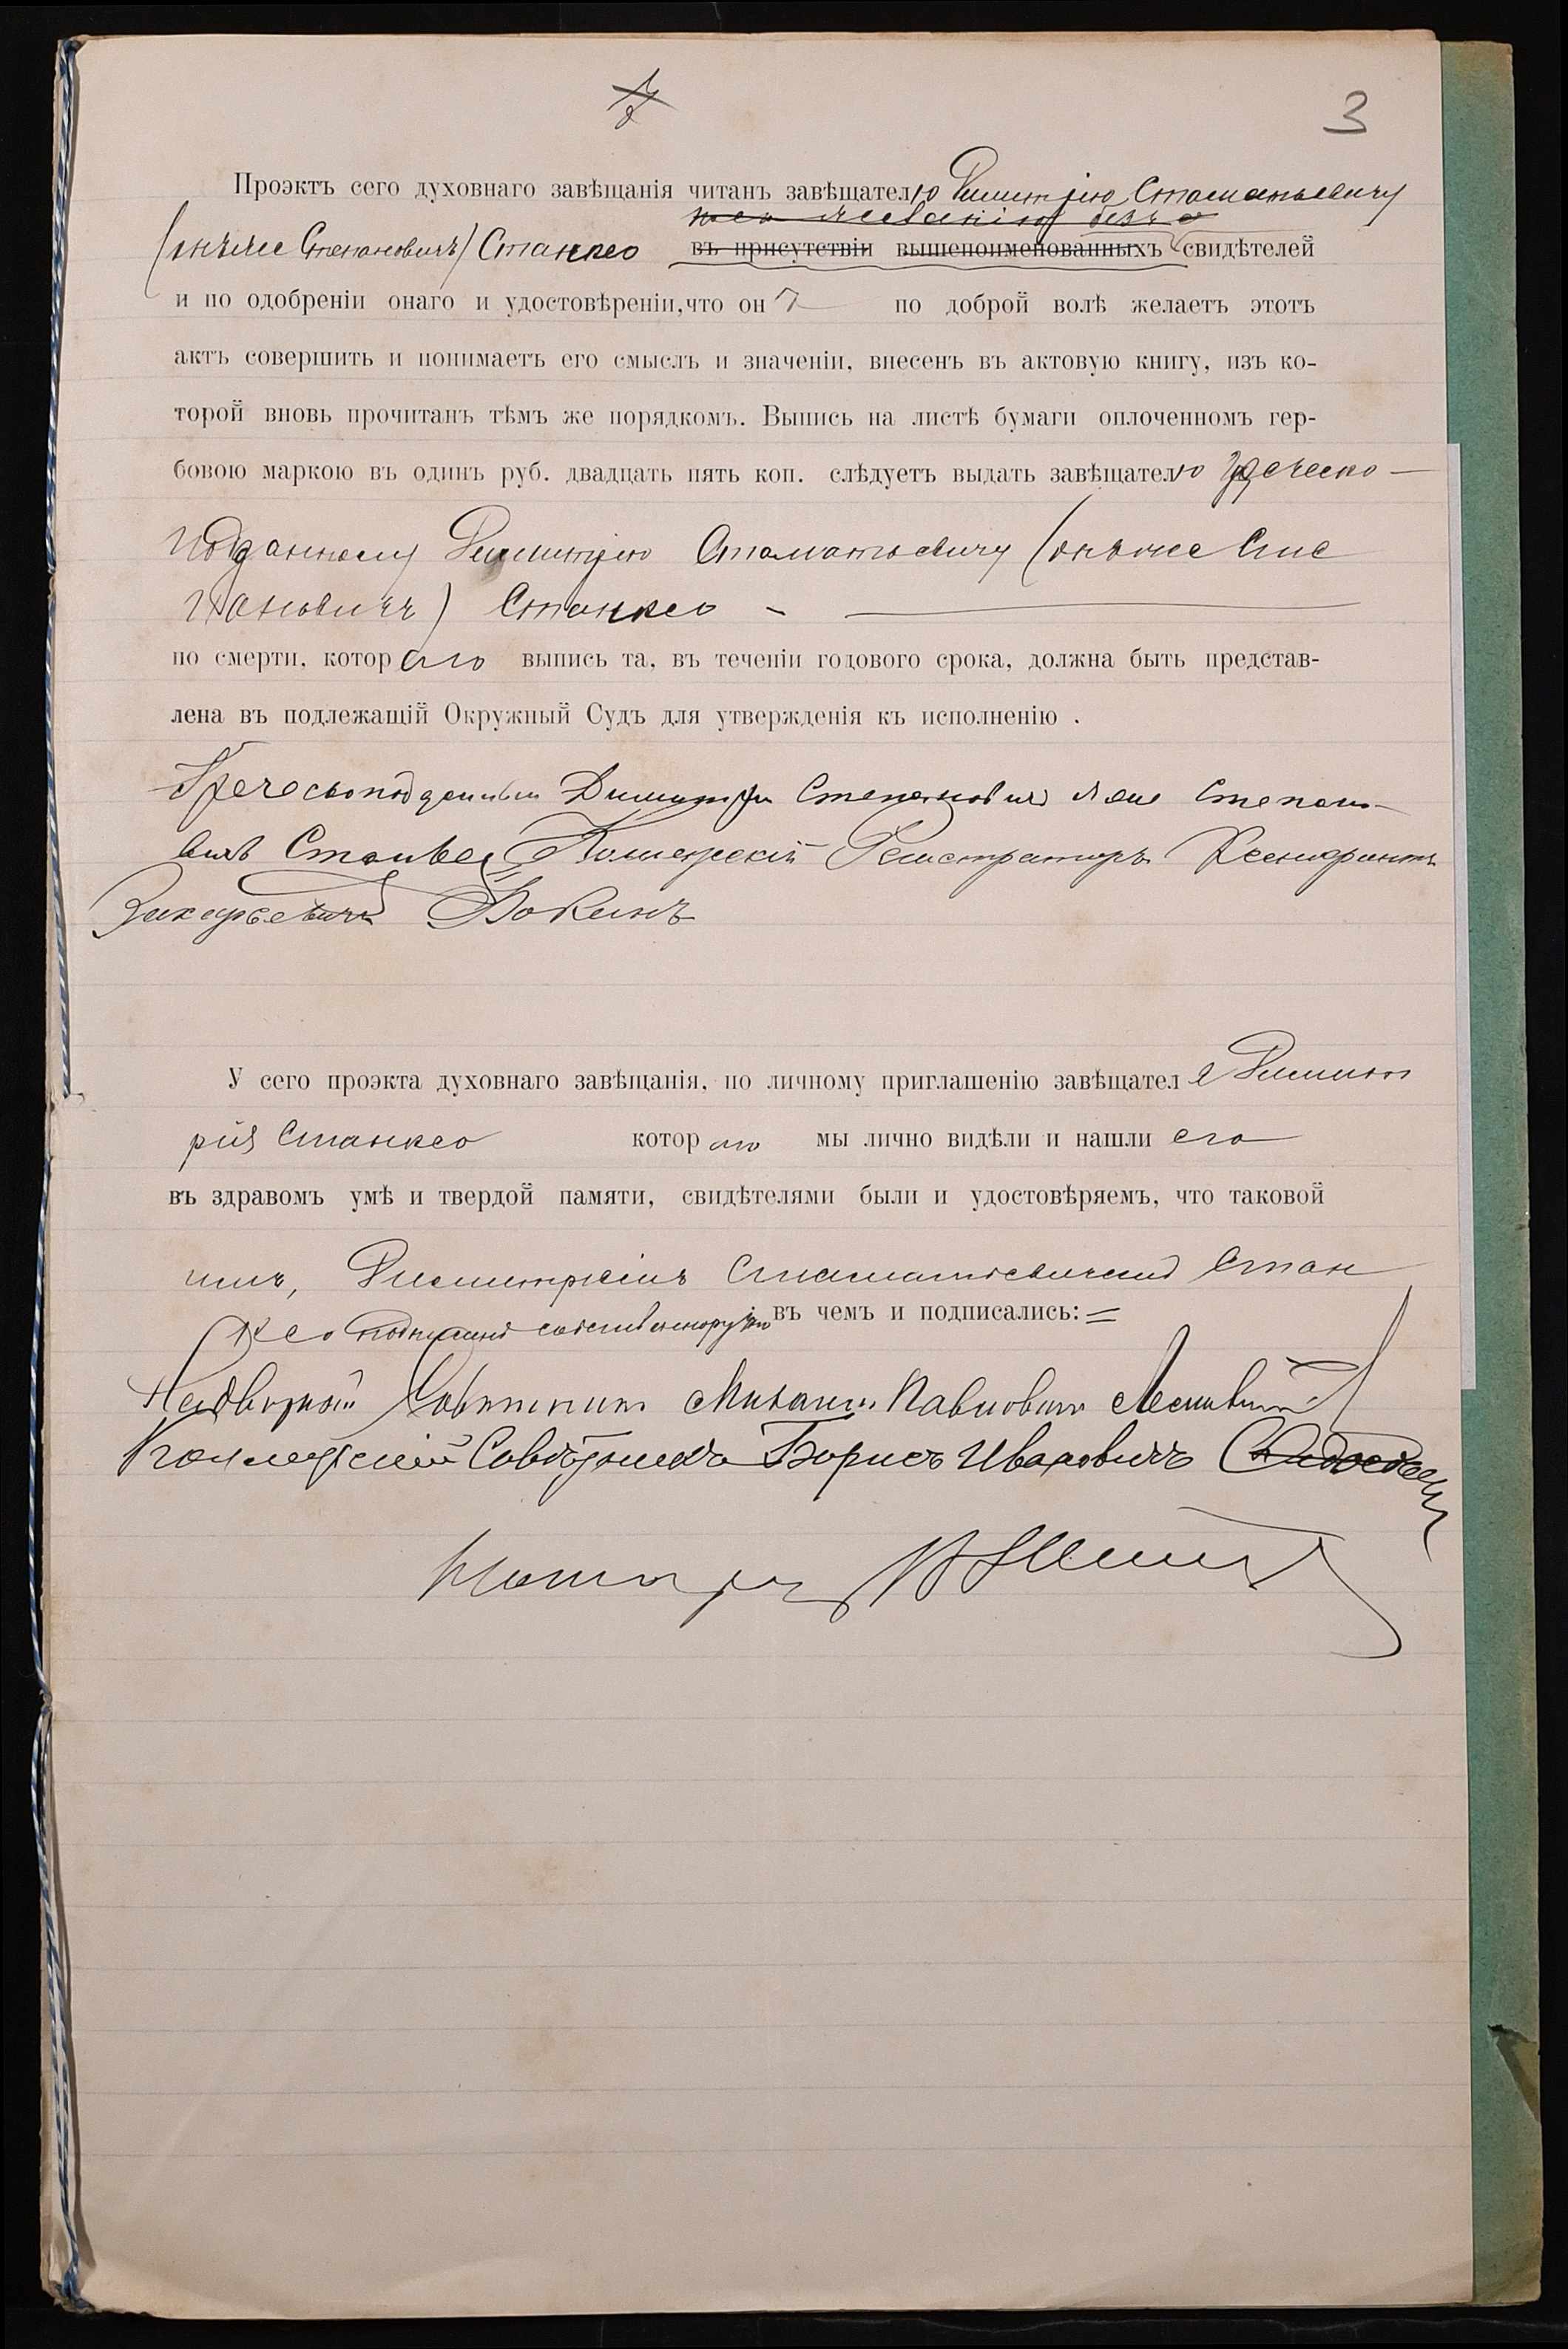 3
Проэктъ сего духовнаго завѣщанія читанъ завѣщателю Димитрію Стаматьевичу
по желанію безъ
(онъ же Степановичъ) Станкео въ присутствіи вышепоименованныхъ свидѣтелей
и по одобреніи онаго и удостовѣреніи, что онъ по доброй волѣ желаетъ этотъ
актъ совершить и понимаетъ его смыслъ и значеніи, внесенъ въ актовую книгу, изъ ко-
торой вновь прочитанъ тѣмъ же порядкомъ. Выпись на листѣ бумаги оплоченномъ гер-
бовою маркою въ одинъ руб. двадцать пять коп. слѣдуетъ выдать завѣщателю Греческо-
подданному Димитрію Стаматьевичу (онъ же Сте
пановичъ) Станкео
по смерти, котораго выпись та, въ теченіи годового срока, должна быть представ-
лена въ подлежащій Окружный Судъ для утвержденія къ исполненію .
Греческоподданный Димитрій Степановичъ Степано-
вичъ Станкео Коллежскій Регистраторъ
Захарьевичъ
У сего проэкта духовнаго завѣщанія, по личному приглашенію завѣщателя Димит
рія Станкео котораго мы лично видѣли и нашли его
въ здравомъ умѣ и твердой памяти, свидѣтелями были и удостовѣряемъ, что таковой
имъ, Димитріемъ Стаматьевичемъ Стан
кео подписанъ собственноручно въ чемъ и подписались:=
Надворный Совѣтникъ Михаилъ Павловичъ
Коллежскій Совѣтникъ Борисъ Ивановичъ
Нотаріусъ